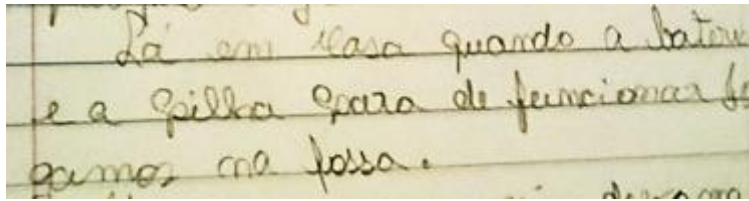 Lá em casa quando a bateri
e a pilha para de funcionar jo
gamos na fossa.